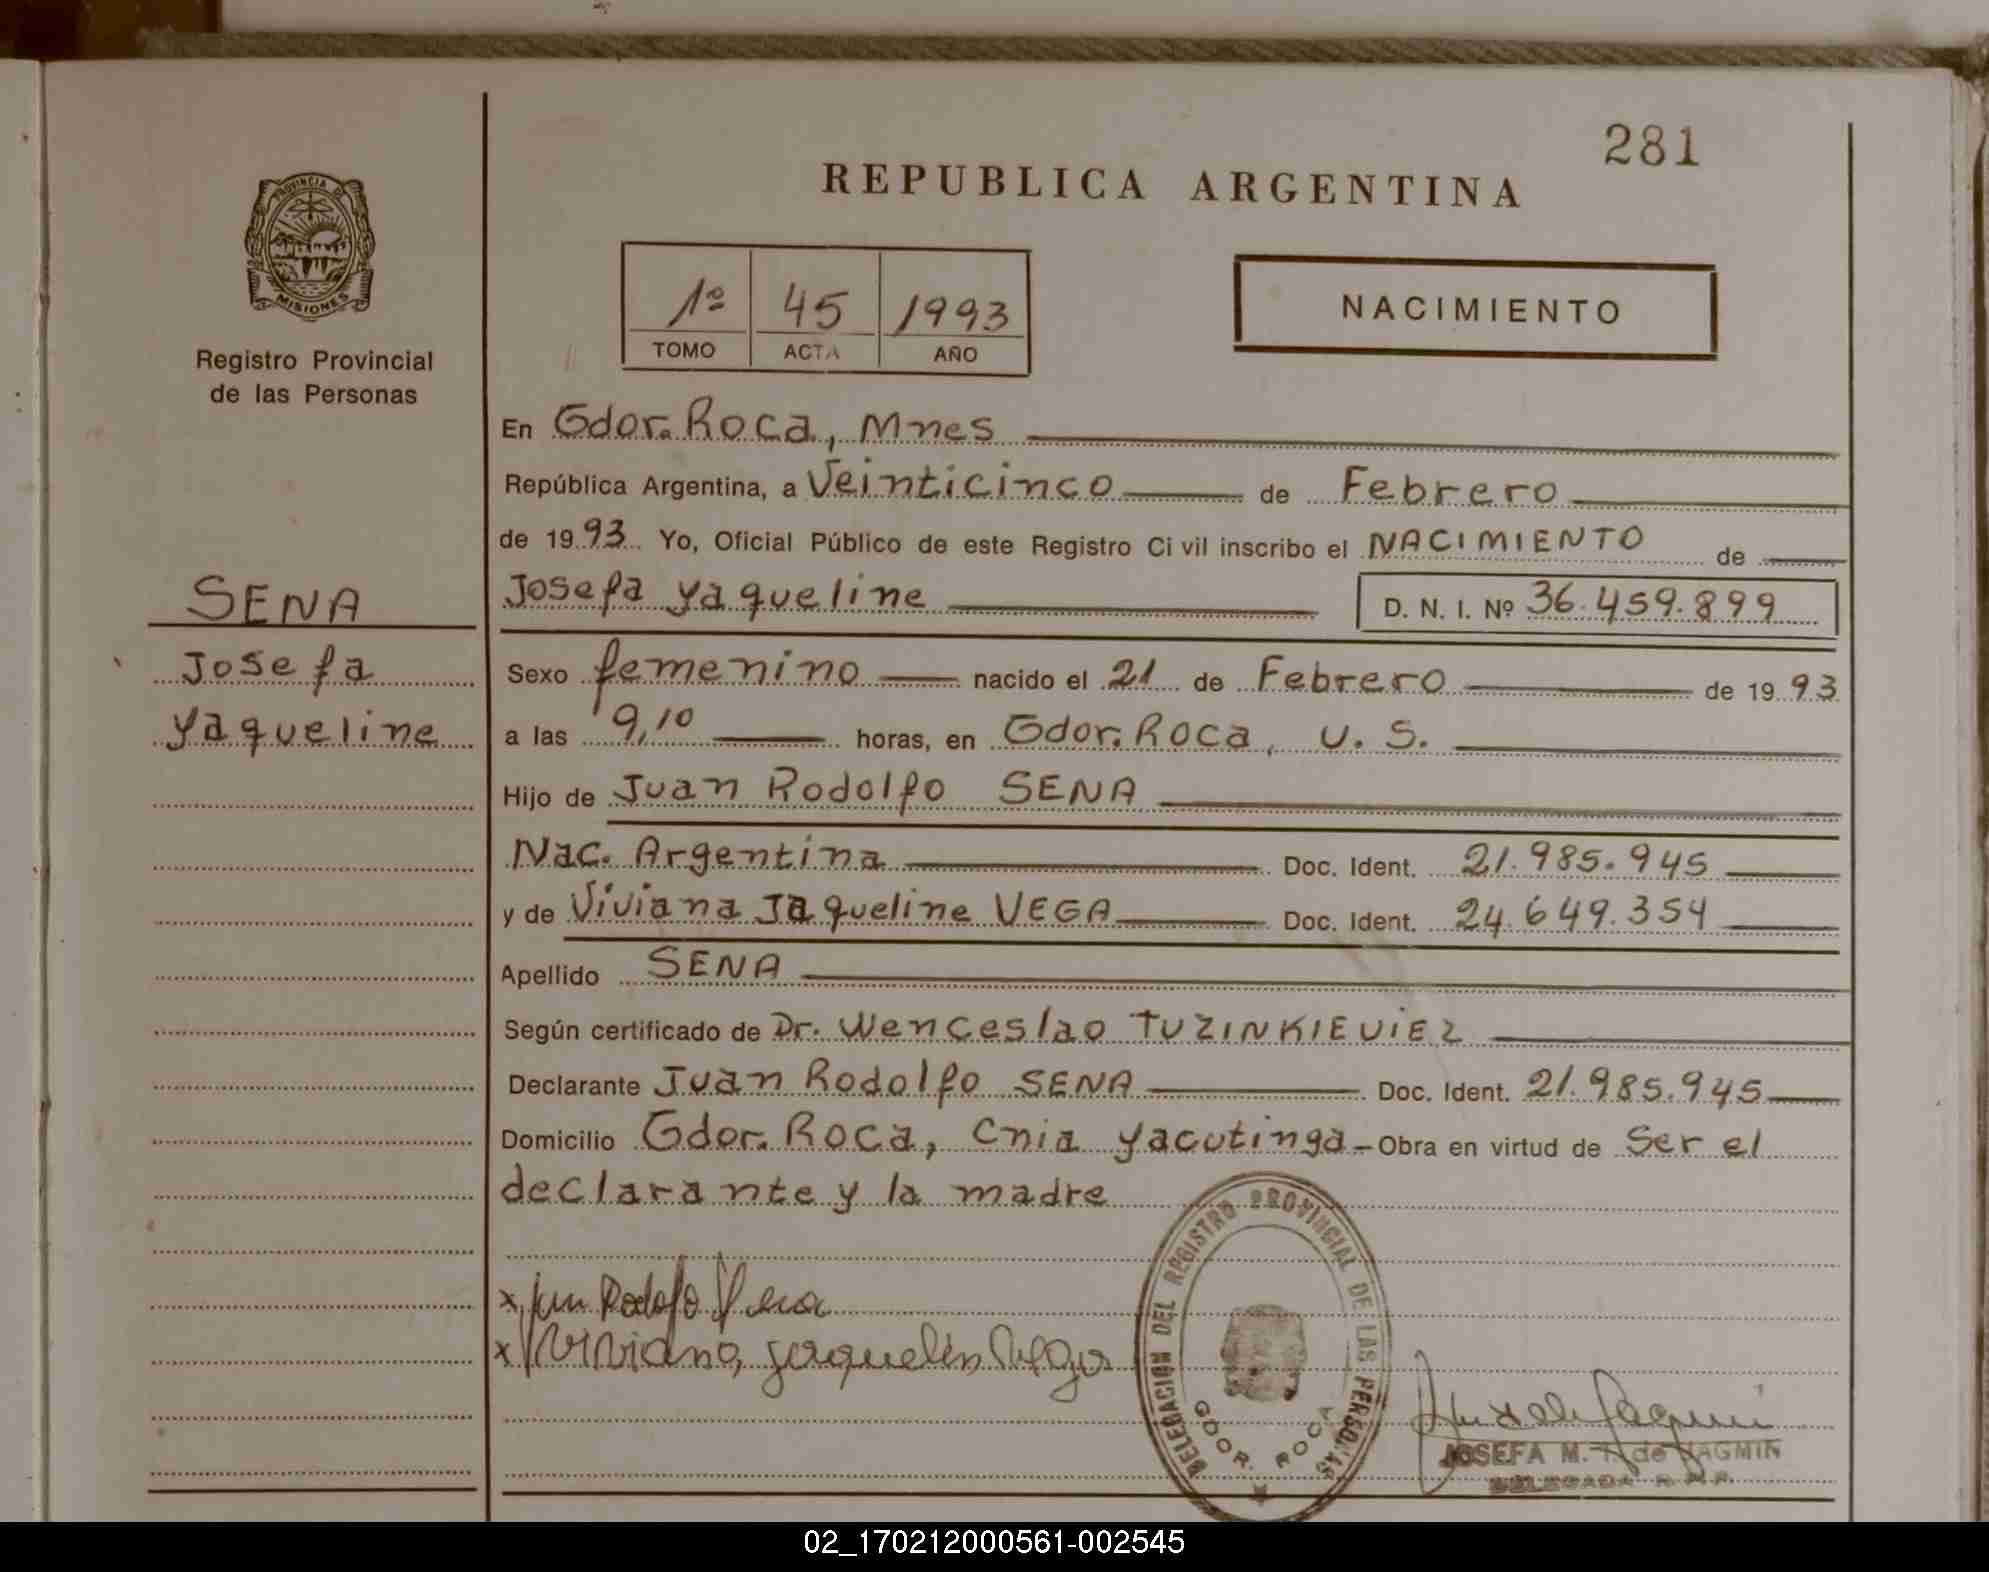 281
REPUBLICA ARGENTINA
PROVINCIA DE
MISIONES
Registro Provincial
de las Personas
1º 45 1993
TOMO ACTA AÑO
NACIMIENTO
En Gdor. Roca, Mnes
República Argentina, a Veinticinco de Febrero
de 1993 Yo, Oficial Público de este Registro Civil inscribo el NACIMIENTO de
Josefa Yaqueline D. N. I. Nº 36.459.899
SENA
Josefa
Yaqueline
Sexo femenino nacido el 21 de Febrero de 1993
a las 9,10 horas, en Gdor. Roca, U. S.
Hijo de Juan Rodolfo SENA
Nac. Argentina Doc. Ident. 21.985.945
y de Viviana Jaqueline VEGA Doc. Ident. 24.649.354
Apellido SENA
Según certificado de Dr. Wenceslao TUZINKIEVIEZ
Declarante Juan Rodolfo SENA Doc. Ident. 21.985.945
Domicilio Gdor. Roca, Cnia Yacutinga - Obra en virtud de Ser el
declarante y la madre
x Juan Rodolfo Sena
x Viviana
DELEGACION DEL REGISTRO PROVINCIAL DE LAS PERSONAS
GDOR. ROCA
JOSEFA M. T. de JAGMIN
DELEGADA R. P. P.
02_170212000561-002545